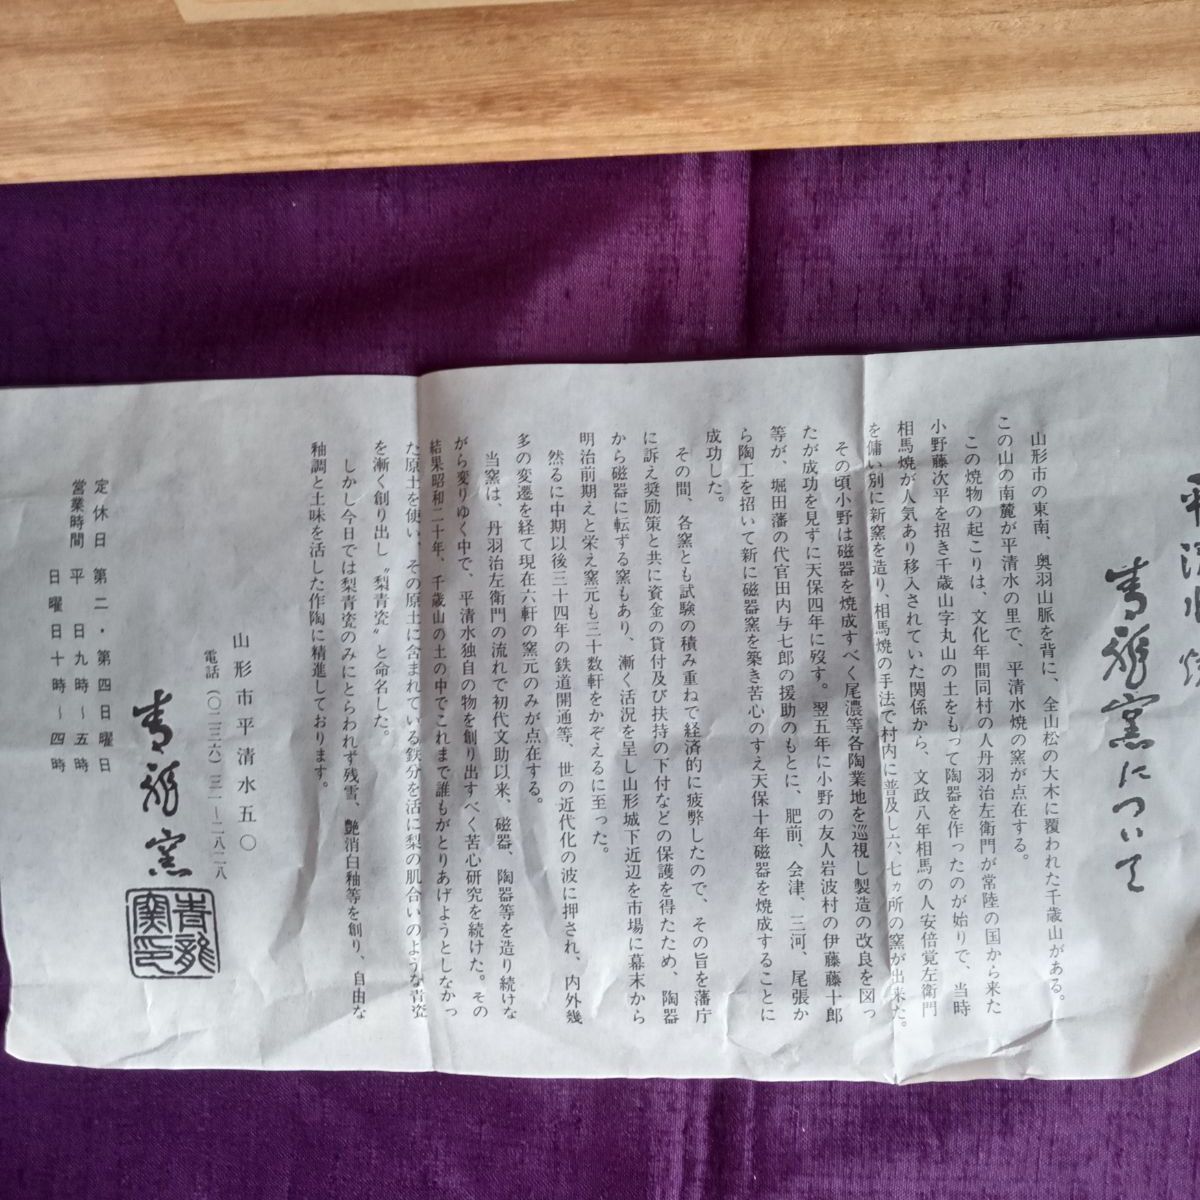 平清水焼
青龍窯について
山形市の東南、奥羽山脈を背に、全山松の大木に覆われた千歳山がある。
この山の南麓が平清水の里で、平清水焼の窯が点在する。
この焼物の起こりは、文化年間同村の人丹羽治左衛門が常陸の国から来た
小野藤次平を招き千歳山字丸山の土をもって陶器を作ったのが始りで、当時
相馬焼が人気あり移入されていた関係から、文政八年相馬の人安倍覚左衛門
を傭い別に新窯を造り、相馬焼の手法で村内に普及し六、七ヵ所の窯が出来た。
その頃小野は磁器を焼成すべく尾濃等各陶業地を巡視し製造の改良を図っ
たが成功を見ずに天保四年に歿す。翌五年に小野の友人岩波村の伊藤藤十郎
等が、堀田藩の代官田内与七郎の援助のもとに、肥前、会津、三河、尾張か
ら陶工を招いて新に磁器窯を築き苦心のすえ天保十年磁器を焼成することに
成功した。
その間、各窯とも試験の積み重ねで経済的に疲弊したので、その旨を藩庁
に訴え奨励策と共に資金の貸付及び扶持の下付などの保護を得たため、陶器
から磁器に転ずる窯もあり、漸く活況を呈し山形城下近辺を市場に幕末から
明治前期えと栄え窯元も三十数軒をかぞえるに至った。
然るに中期以後三十四年の鉄道開通等、世の近代化の波に押され、内外幾
多の変遷を経て現在六軒の窯元のみが点在する。
当窯は、丹羽治左衛門の流れで初代文助以来、磁器、陶器等を造り続けな
がら変りゆく中で、平清水独自の物を創り出すべく苦心研究を続けた。その
結果昭和二十年、千歳山の土の中でこれまで誰もがとりあげようとしなかっ
た原土を使い、その原土に含まれている鉄分を活に梨の肌合いのような青瓷
を漸く創り出し〝梨青瓷〟と命名した。
しかし今日では梨青瓷のみにとらわれず残雪、艶消白釉等を創り、自由な
釉調と土味を活した作陶に精進しております。
山形市平清水五〇
電話（〇二三六）三一〜二八二八
青龍窯
青龍窯印
定休日 第二・第四日曜日
営業時間 平日九時〜五時
日曜日十時〜四時